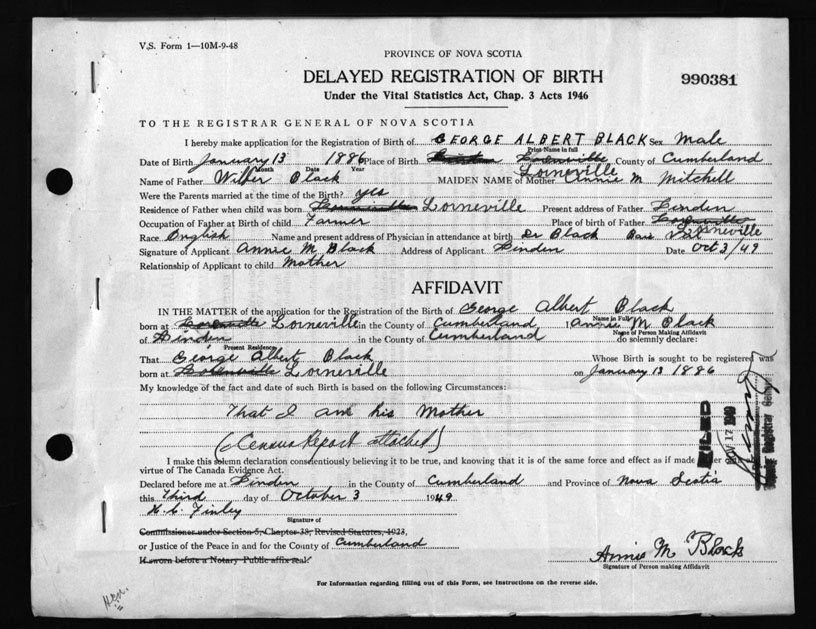 V.S. Form 1—10M-9-48
PROVINCE OF NOVA SCOTIA
DELAYED REGISTRATION OF BIRTH
990381
Under the Vital Statistics Act, Chap. 3 Acts 1946
TO THE REGISTRAR GENERAL OF NOVA SCOTIA
I hereby make application for the Registration of Birth of GEORGE ALBERT BLACK Sex Male
Print Name in full
Date of Birth January 13 1886 Place of Birth Lorneville County of Cumberland
Month Date Year
Name of Father Wilber Black MAIDEN NAME of Mother Annie M Mitchell
Were the Parents married at the time of the Birth? yes
Residence of Father when child was born Lorneville Present address of Father Linden
Occupation of Father at Birth of child Farmer Place of birth of Father Lorneville
Race English Name and present address of Physician in attendance at birth Dr Black
Signature of Applicant Annie M Black Address of Applicant Linden Date Oct 3/49
Relationship of Applicant to child Mother
AFFIDAVIT
IN THE MATTER of the application for the Registration of the Birth of George Albert Black
Name in Full
born at Lorneville in the County of Cumberland, Annie M Black
Name of Person Making Affidavit
of Linden in the County of Cumberland do solemnly declare:
Present Residence
That George Albert Black Whose Birth is sought to be registered was
born at Lorneville on January 13 1886
My knowledge of the fact and date of such Birth is based on the following Circumstances:
That I am his Mother
(Census Report attached)
I make this solemn declaration conscientiously believing it to be true, and knowing that it is of the same force and effect as if made under oath
virtue of The Canada Evidence Act.
Declared before me at Linden in the County of Cumberland and Province of Nova Scotia
this Third day of October 3 1949
H. C. Finley
Signature of
Commissioner under Section 5, Chapter 38, Revised Statutes, 1923,
or Justice of the Peace in and for the County of Cumberland
If sworn before a Notary Public affix seal
Annie M Black
Signature of Person making Affidavit
For Information regarding filling out of this Form, see Instructions on the reverse side.
FILED
NOV 17 1949